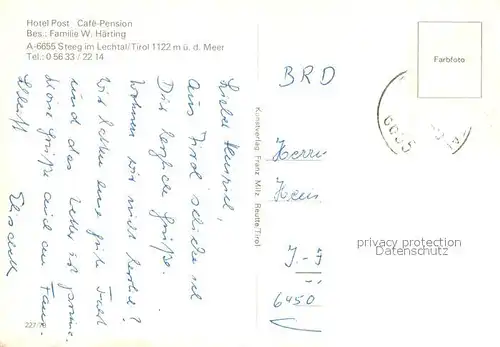 Hotel Post Café-Pension
Bes.: Familie W. Härting
A-6655 Steeg im Lechtal/Tirol 1122 m ü. d. Meer
Tel.: 0 56 33 / 22 14
aus Tirol schicke ich
Dir herzliche Grüße.
Wohnen wir nicht herrlich?
Wir hatten eine gute Fahrt
und das Wetter ist prima.
Grüße auch an Frau
Elisabeth
227/78
Kunstverlag Franz Milz, Reutte/Tirol
BRD
Herrn
6450
Farbfoto
6655
privacy protection
Datenschutz